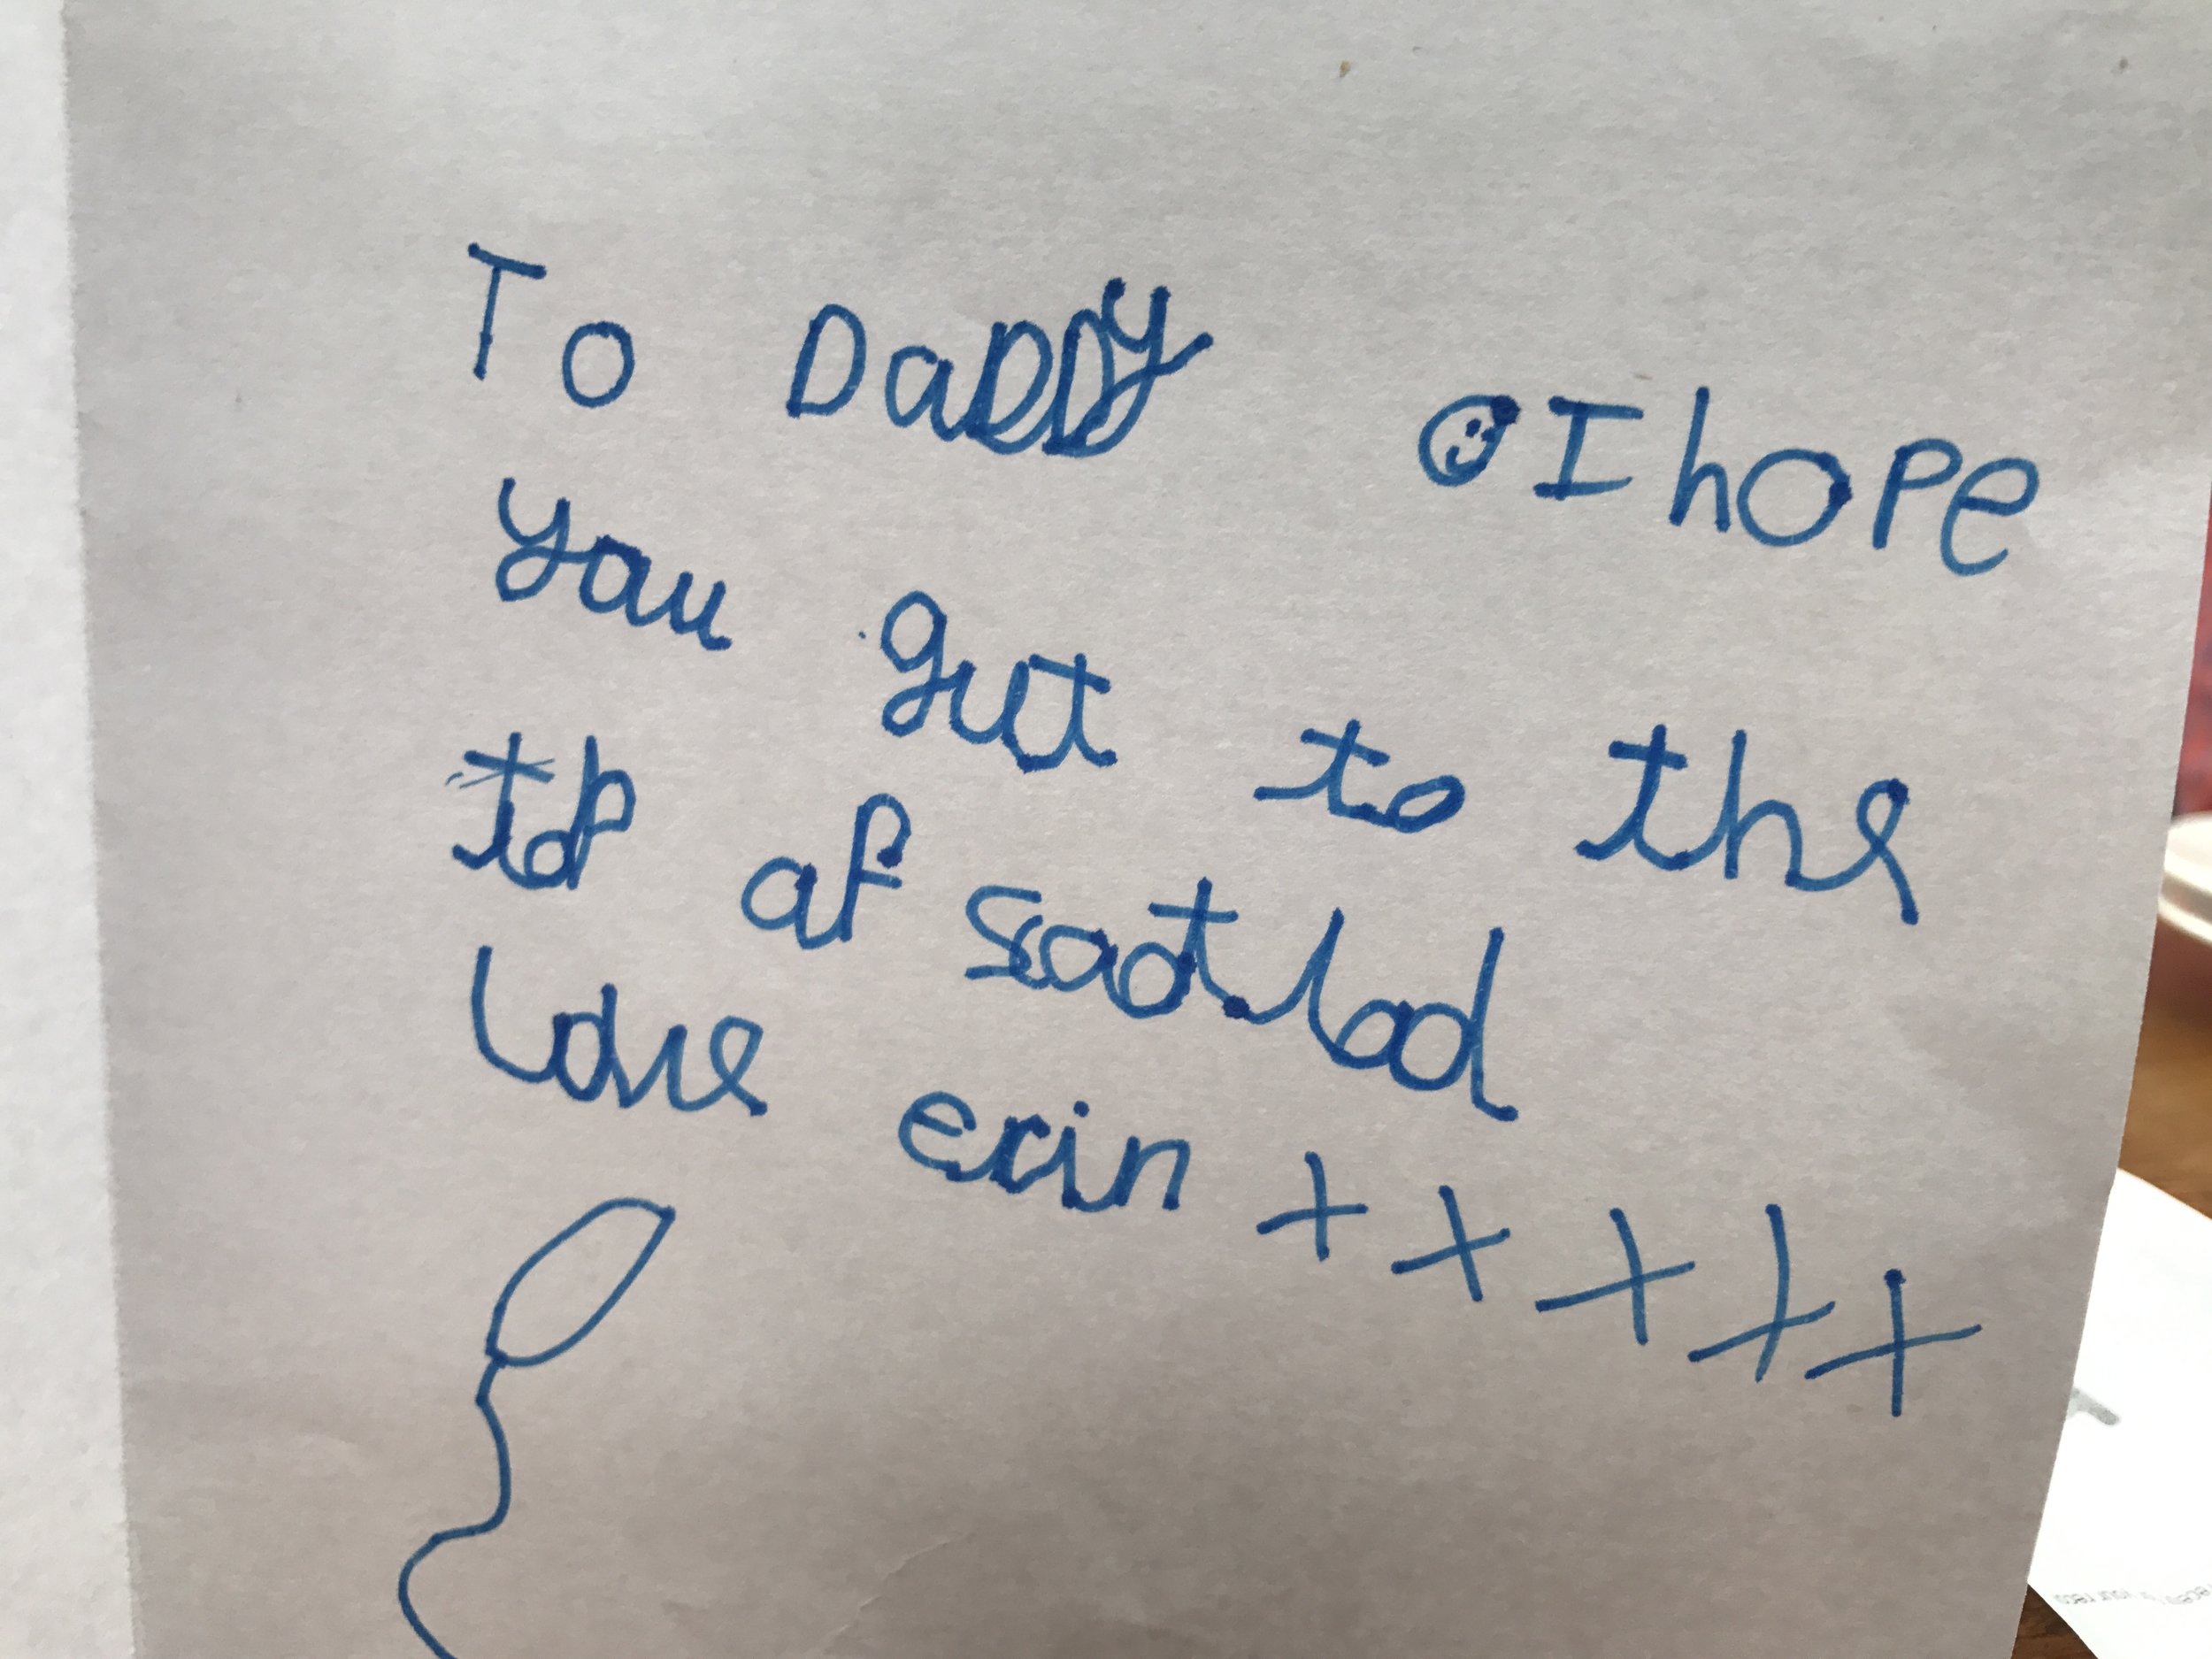 To DaDDy I hope
you gut to the
top of scotlod
love erin x x x x x